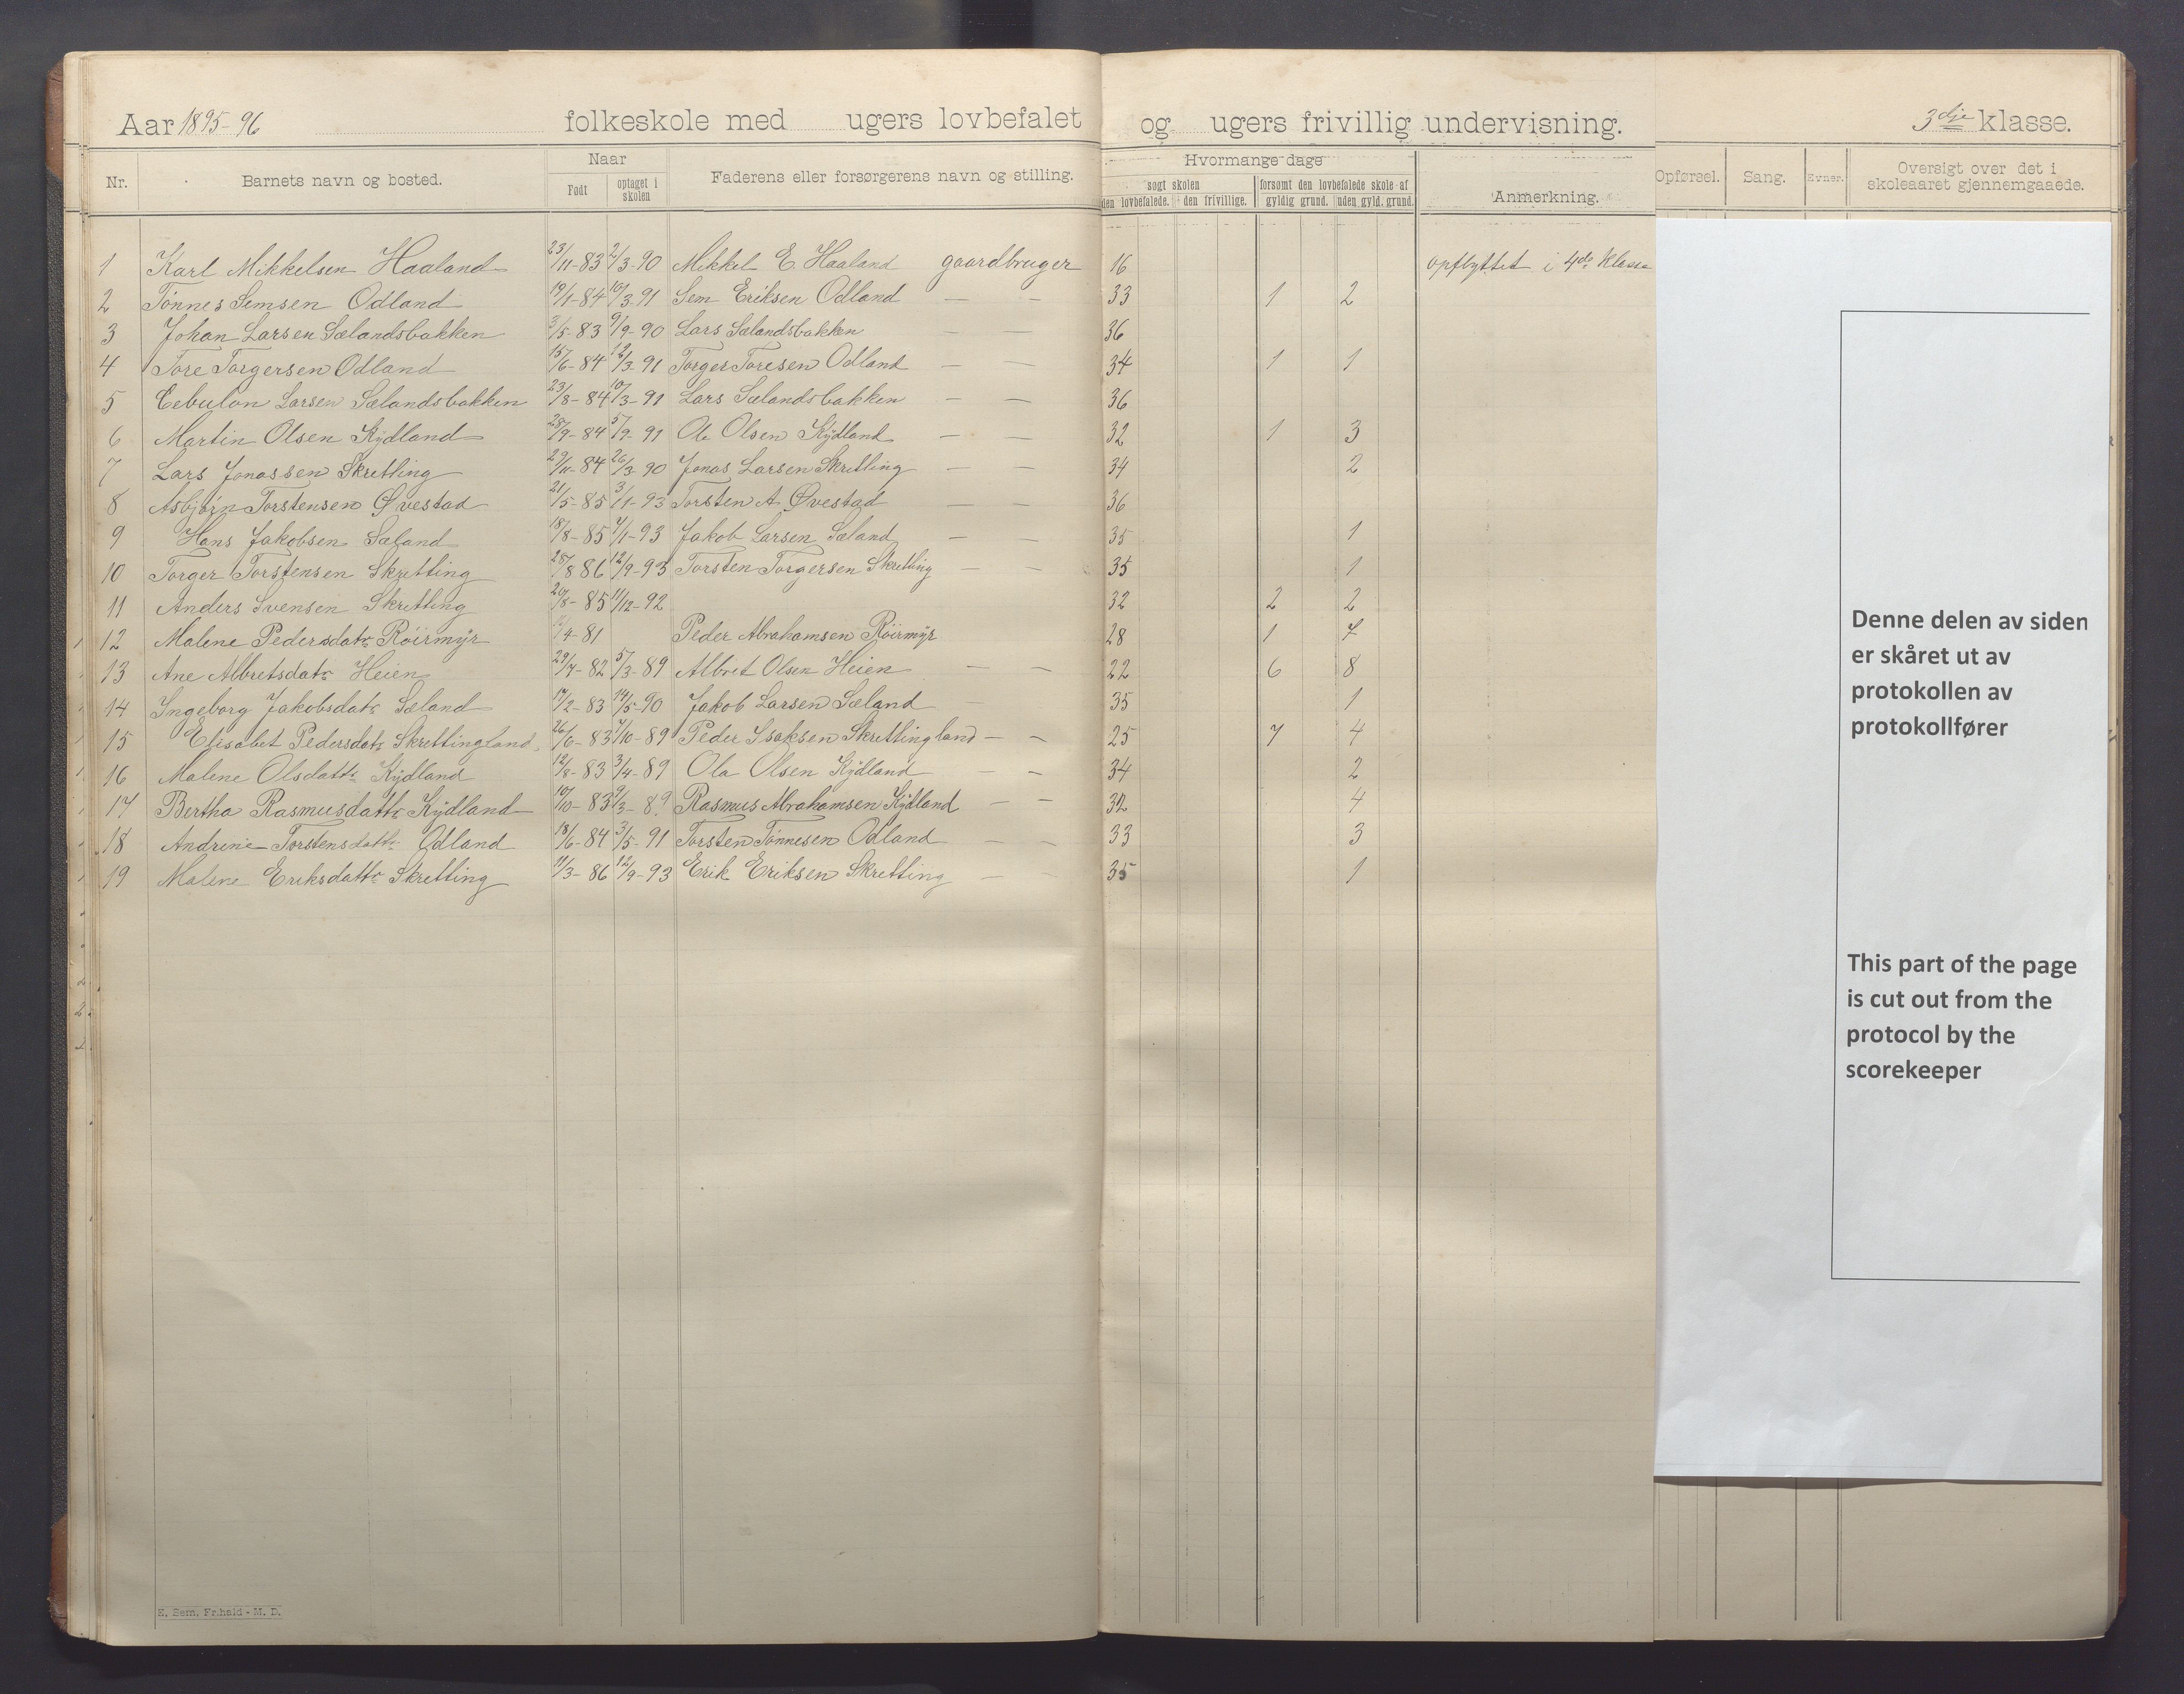 Aar 1895-96 folkeskole med ugers lovbefalet og ugers frivillig undervisning. 3dje klasse.
Nr. Barnets navn og bosted. Naar Faderens eller forsørgerens navn og stilling. Hvormange dage Anmerkning. Opførsel. Sang. Evner. Oversigt over det i skoleaaret gjennemgaaede.
Født optaget i skolen søgt skolen forsømt den lovbefalede skole af
den lovbefalede. den frivillige. gyldig grund. uden gyld. grund.
1 Karl Mikkelsen Haaland 23/11-83 2/3-90 Mikkel E. Haaland gaardbruger 16 opflyttet i 4de Klasse
2 Tønnes Semsen Odland 19/1-84 10/3-91 Sem Eriksen Odland — — 33 1 2
3 Johan Larsen Sælandsbakken 3/5-83 9/9-90 Lars Sælandsbakken — — 36
4 Tore Torgersen Odland 15/6-84 12/3-91 Torger Toresen Odland — — 34 1 1
5 Cebulon Larsen Sælandsbakken 23/8-84 10/3-91 Lars Sælandsbakken — — 36
6 Martin Olsen Kÿdland 28/9-84 5/9-91 Ole Olsen Kÿdland — — 32 1 3
7 Lars Jonassen Skretting 29/11-84 26/3-90 Jonas Larsen Skretting — — 34 2
8 Asbjørn Torstensen Øvestad 21/5-85 3/11-93 Torsten A Øvestad — — 36
9 Hans Jakobsen Sæland 18/8-85 7/1-93 Jakob Larsen Sæland — — 35 1
10 Torger Torstensen Skretting 28/8 86 12/9-93 Torsten Torgersen Skretting — — 35 1
11 Anders Svensen Skretting 20/8-85 11/12-92 32 2 2
12 Malene Pedersdatr Röirmÿr /4-81 Peder Abrahamsen Röirmÿr 28 1 7
13 Ane Albretsdatr Heien 29/7-82 5/3-89 Albret Olsen Heien — — 22 6 8
14 Ingeborg Jakobsdatr Sæland 17/2-83 14/5-90 Jakob Larsen Sæland — 35 1
15 Elisabet Pedersdatr Skrettingland 26/6-83 7/10-89 Peder Isaksen Skrettingland — — 25 7 4
16 Malene Olsdattr Kÿdland 12/8-83 3/4-89 Ola Olsen Kÿdland — — 34 2
17 Bertha Rasmusdattr Kÿdland 10/10-83 9/3-89 Rasmus Abrahamsen Kÿdland — — 32 4
18 Andrine Torstensdattr Odland 18/6-84 3/5-91 Torsten Tönnesen Odland — — 33 3
19 Malene Eriksdattr Skretting 11/3-86 12/9-93 Erik Eriksen Skretting — — 35 1
Denne delen av siden
er skåret ut av
protokollen av
protokollfører
This part of the page
is cut out from the
protocol by the
scorekeeper
E. Sem, Fr.hald - M. D.